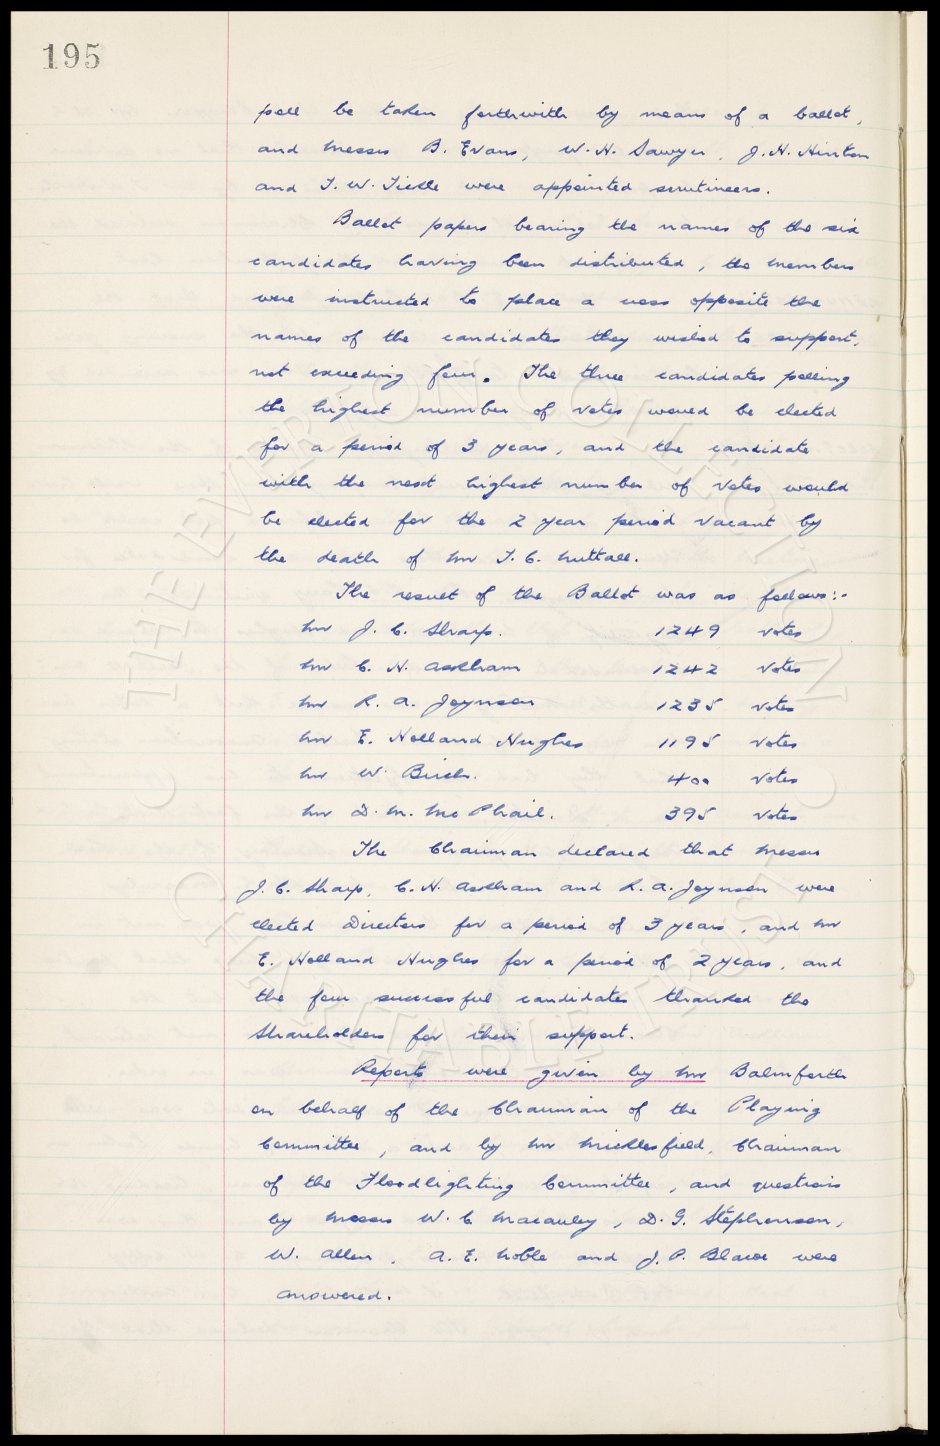 195
poll be taken forthwith by means of a ballot,
and Messrs B. Evans, W. H. Sawyer, J. H. Hinton
and T. W. Tickle were appointed scrutineers.
Ballot papers bearing the names of the six
candidates having been distributed, the members
were instructed to place a cross opposite the
names of the candidates they wished to support,
not exceeding four. The three candidates polling
the highest number of votes would be elected
for a period of 3 years, and the candidate
with the next highest number of votes would
be elected for the 2 year period vacant by
the death of Mr T. C. Nuttall.
The result of the Ballot was as follows:-
Mr J. C. Sharp. 1249 votes
Mr C. H. Askham 1242 votes
Mr R. A. Joynson 1235 votes
Mr E. Holland Hughes 1195 votes
Mr W. Birch. 400 votes
Mr D. M. McPhail. 395 votes
The Chairman declared that Messrs
J. C. Sharp, C. H. Askham and R. A. Joynson were
elected Directors for a period of 3 years, and Mr
E. Holland Hughes for a period of 2 years, and
the four successful candidates thanked the
Shareholders for their support.
Reports were given by Mr Balmforth
on behalf of the Chairman of the Playing
Committee, and by Mr Micklesfield, Chairman
of the Floodlighting Committee, and questions
by Messrs W. C. Macauley, D. G. Stephenson,
W. Allen, A. E. Noble and J. P. were
answered.
THE EVERTON COLLECTION
CHARITABLE TRUST